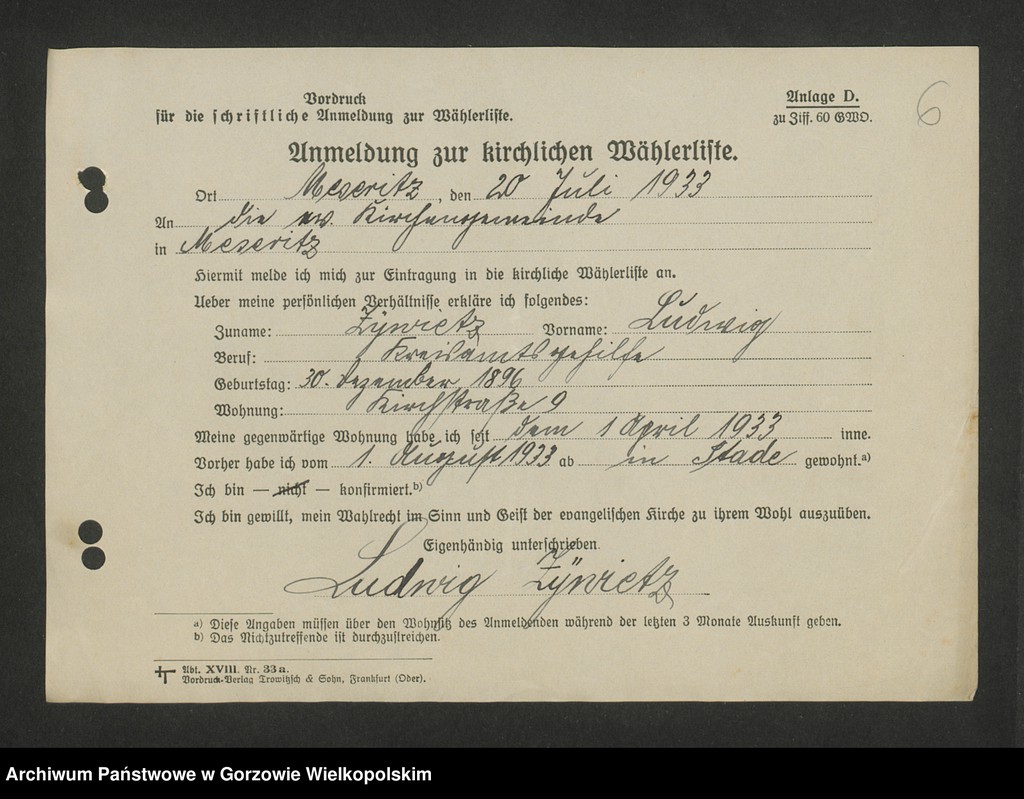 Vordruck
für die schriftliche Anmeldung zur Wählerliste.
Anlage D.
zu Ziff. 60 GWO.
6
Anmeldung zur kirchlichen Wählerliste.
Ort Meseritz, den 20 Juli 1933
An die ev. Kirchengemeinde
in Meseritz
Hiermit melde ich mich zur Eintragung in die kirchliche Wählerliste an.
Ueber meine persönlichen Verhältnisse erkläre ich folgendes:
Zuname: Zÿwietz Vorname: Ludwig
Beruf: Kreisamtsgehilfe
Geburtstag: 30. Dezember 1896
Wohnung: Kirchstraße 9
Meine gegenwärtige Wohnung habe ich seit dem 1 April 1933 inne.
Vorher habe ich vom 1. August 1933 ab in Stade gewohnt.a)
Ich bin — nicht — konfirmiert.b)
Ich bin gewillt, mein Wahlrecht im Sinn und Geist der evangelischen Kirche zu ihrem Wohl auszuüben.
Eigenhändig unterschrieben.
Ludwig Zÿwietz
a) Diese Angaben müssen über den Wohnsitz des Anmeldenden während der letzten 3 Monate Auskunft geben.
b) Das Nichtzutreffende ist durchzustreichen.
Abt. XVIII. Nr. 33a.
Vordruck-Verlag Trowitzsch & Sohn, Frankfurt (Oder).
Archiwum Państwowe w Gorzowie Wielkopolskim